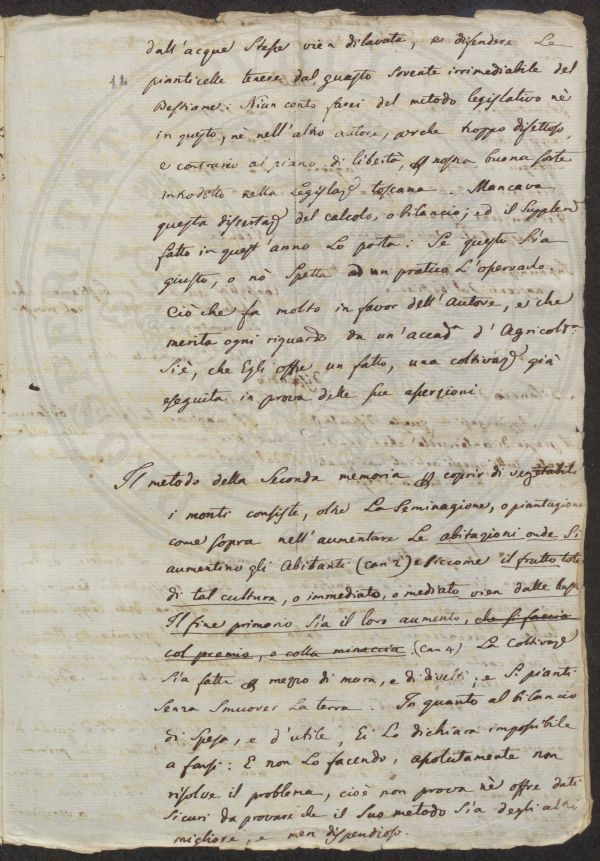 dall'acque Stesse vien dilavata, e difendere Le
14 pianticelle tenere dal guasto sovente irrimediabile del
Bestiame: Niun conto farei del metodo legislativo nè
in questo, nè nell'altro autore, perche troppo difettoso,
e contrario ai piano di libertà, nostra buona sorte
introdotto nella Legislaz. toscana Mancava
questa dissertaz. del calcolo, o bilancio; ed il Supplem
fatto in quest'anno Lo porta: Se questo Sia
giusto, o nò Spetta ad un pratico L'osservarlo.
Ciò che fa molto in favor dell'Autore, e che
merita ogni riguardo da un'accad.a d'Agricolt:
Si è, che Egli offre un fatto, una coltivaz. già
eseguita in prova delle sue asserzioni
Il metodo della Seconda memoria coprir di vegetabili
i monti consiste, oltre La Seminagione, o piantagione
come sopra nell'aumentare Le abitazioni onde Si
aumentino gli Abitanti (can 2) e siccome il frutto tot
di tal cultura, o immediato, o mediato vien dalle
Il fine primario Sia il loro aumento, che si faccia
col premio, o colla minaccia (can 4) La Coltivaz.
Sia fatta mezzo di mura, e di divelti; e Si pianti
Senza Smuover La terra. In quanto al bilancio
di Spesa, e d'utile, Ei Lo dichiara impossibile
a farsi: E non Lo facendo, assolutamente non
risolve il problema, cioè non prova nè offre dati
Sicuri da provare che il Suo metodo Sia degli altri
migliore, e men dispendioso.